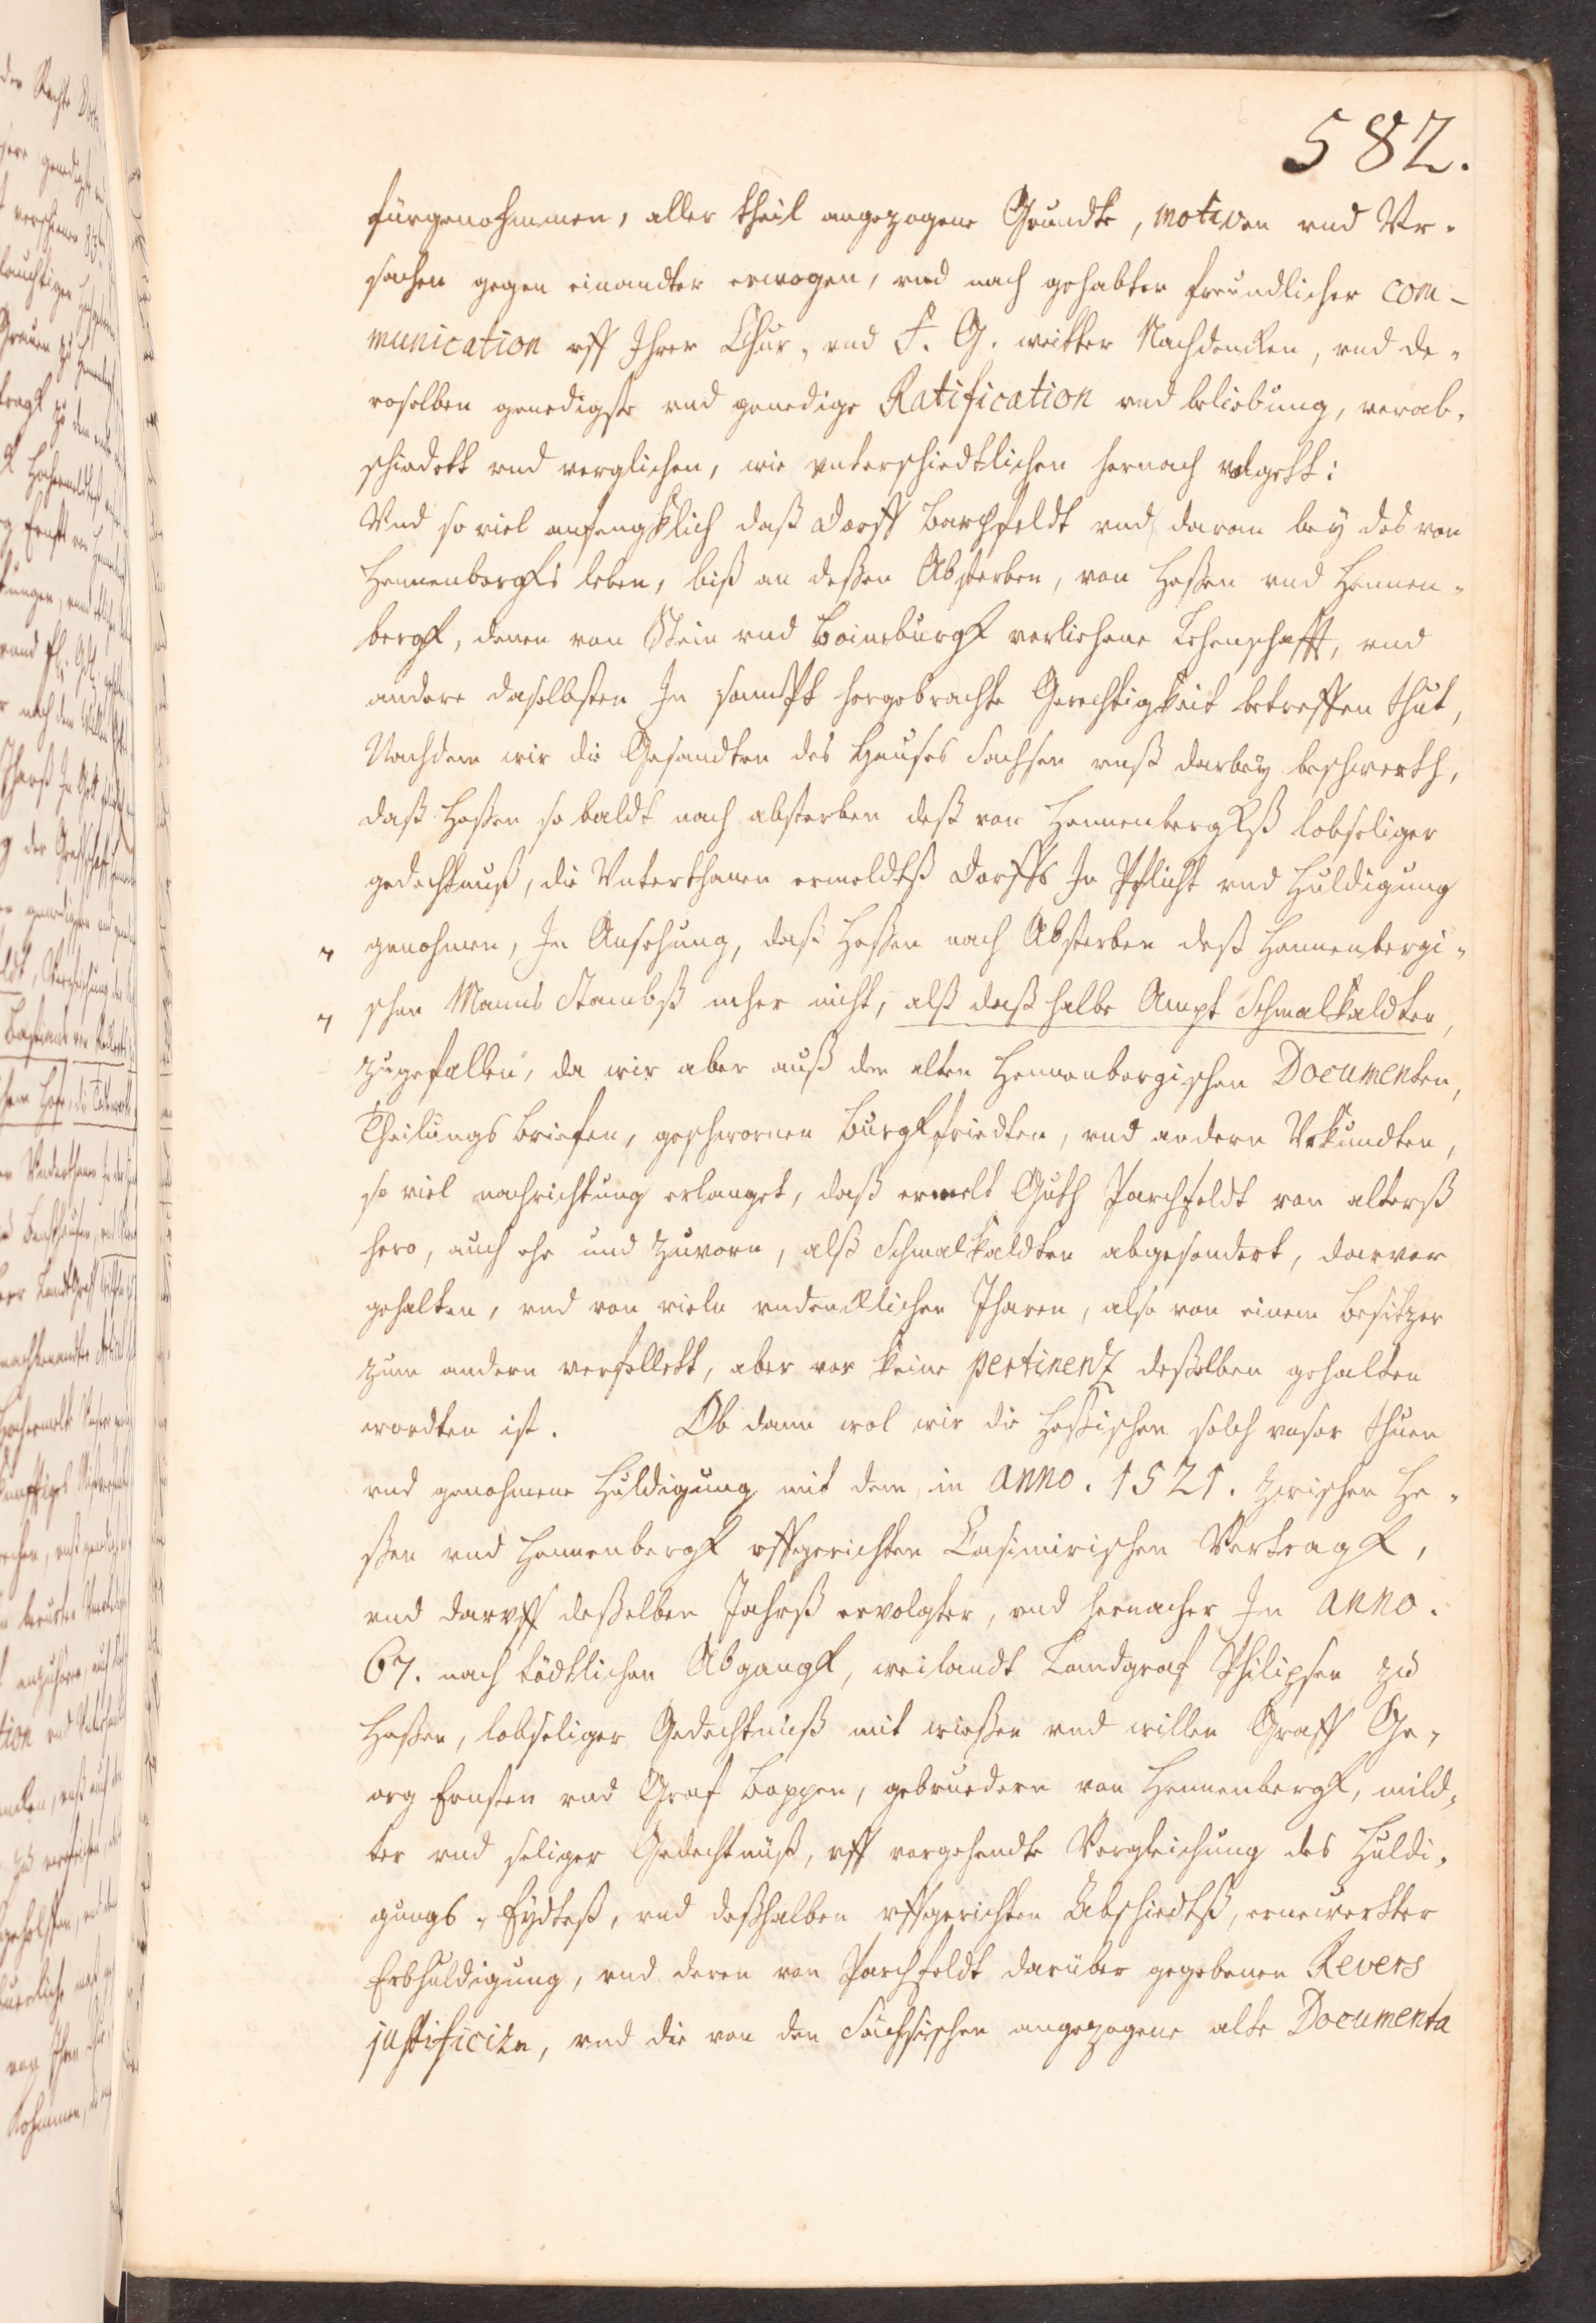 582.
fürgenohmmen, aller theil angezogene Grundte, motiven vnd Vr-
sachen gegen einandter erwogen, vnd nach gehabter freundlicher com-
munication vff Ihrer Chur- vnd F. G. weitter Nachdencken, vnd de-
roselben genedigste vnd genedige Ratification vnd beliebung, verab-
schiedett vnd verglichen, wie vnterschiedtlichen hernach volgett:
Vnd so viel anfengklich daß dorff Barchfeldt vnd daran bey des von
Hennenbergks leben, biß an deßen Absterben, von Heßen vnd Hennen-
bergk, denen von Stein vnd Boineburgk verliehene Lehenschafft, vnd
andere daselbsten In sampt hergebrachte Gerechtigkeit betreffen thut,
Nachdem wir die Gesandten des Hauses Sachsen vnß darbey beschwerth,
daß Heßen so baldt nach absterben deß von Hennenbergkß lobseliger
gedechtnuß, die Vnterthanen ermeldtß dorffs In Pflicht vnd Huldigung
genohmen, In Ansehung, daß Heßen nach Absterben deß Hennenbergi-
schen Manns Stambß mher nicht, alß daß halbe Ampt Schmalkaldten,
zugefallen, da wir aber auß den alten Hennenbergischen Documenten,
Theilungs Briefen, geschwornen Burgkfriedten, vnd andern Vrkundten,
so viel nachrichtung erlanget, daß ermelt Guth Parchfeldt von alterß
hero, auch ehe und zuvorn, alß Schmalkaldten abgesondert, darvor
gehalten, vnd von vieln vndencklichen Jharen, also von einem Besitzer
zum andern verfellett, aber vor keine pertinentz deßelben gehalten
wordten ist. Ob dann wol wir die Heßischen solch vnser thuen
vnd genohmene Huldigung mit dem in anno. 1521. zwischen He-
ßen vnd Hennenbergk vffgerichten Casimirischen Vertragk,
vnd darvff deßelben Jahrß ervolgter, vnd hernacher In anno.
67. nach tödtlichen Abgangk, weilandt Landgraf Philipsen zu
Heßen, lobseliger Gedechtnuß mit wießen vnd willen Graff Ge-
org Ernsten vnd Graf Boppen, gebruedern von Hennenbergk, mild-
ter vnd seliger Gedechtnuß, vff vorgehendte Vergleichung des Huldi-
gungs-Eydteß, vnd deßhalben vffgerichten Abschiedtß, ernewertter
Erbhuldigung, vnd deren von Parchfeldt darüber gegebenen Revers
justificirn, vnd die von den Sächsischen angezogene alte Documenta